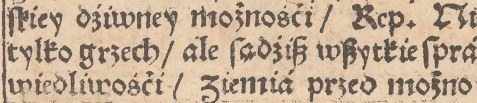 ſkiey dźiwney możnośći / Rcp. Ni
tylko grzech / ale ſądźiſz wßytkie ſprá
wiedliwośći / Ziemiá przed możno